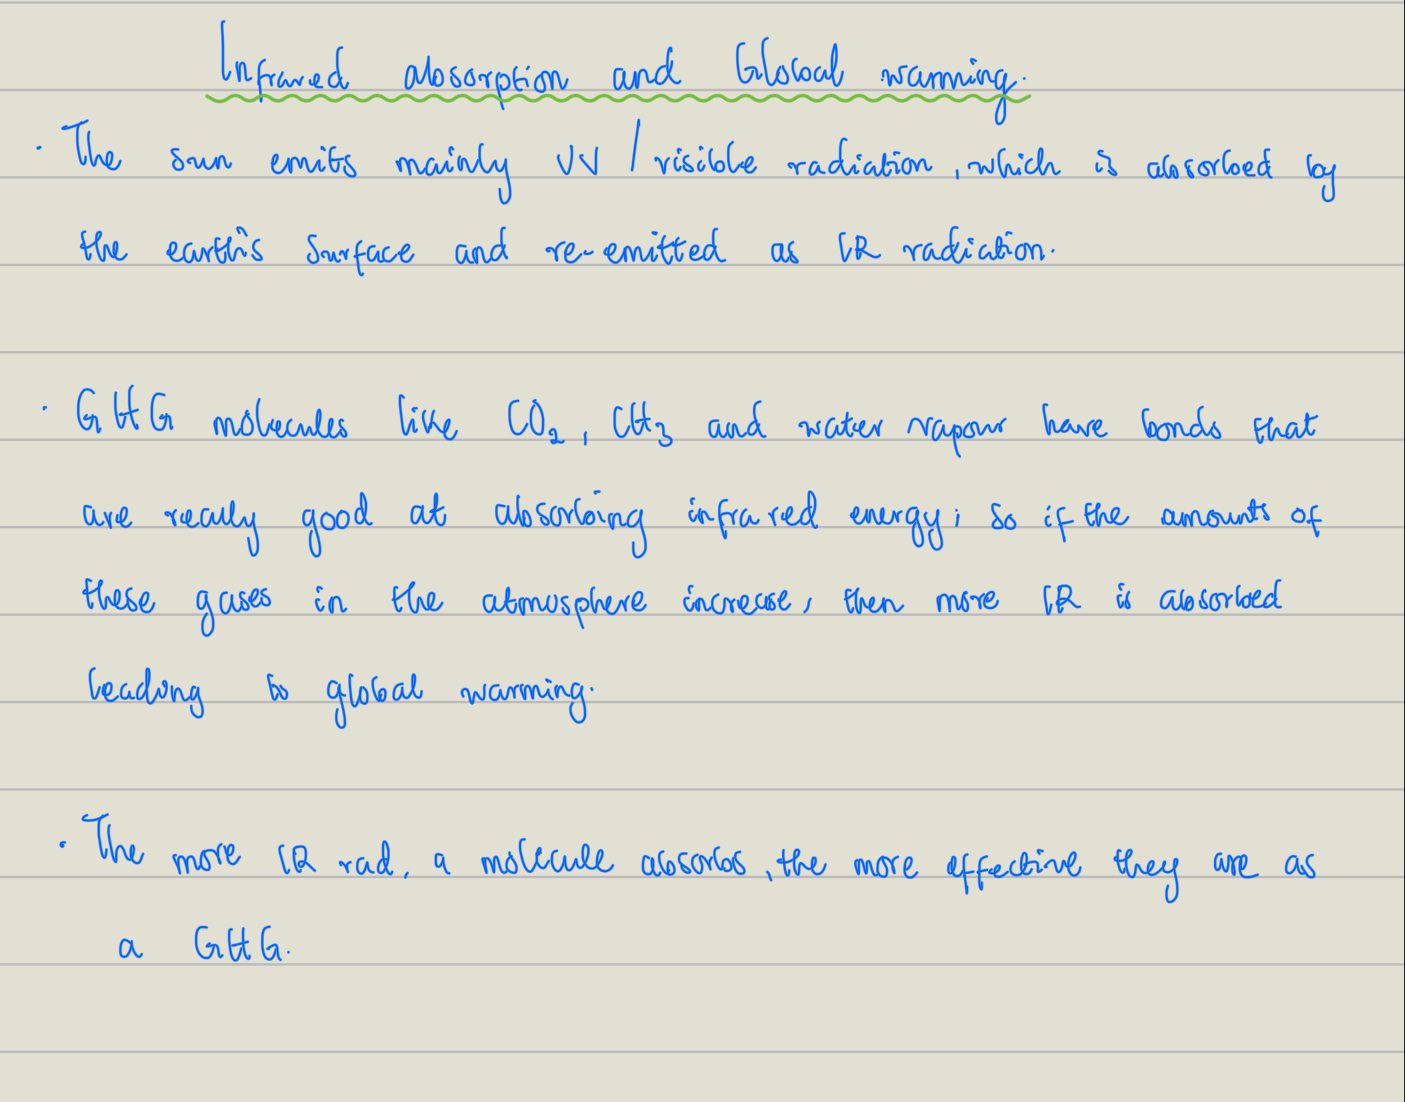 Infrared absorption and Global warming.
· The sun emits mainly UV / visible radiation, which is absorbed by
the earth's surface and re-emitted as IR radiation.
· GHG molecules like CO₂, CH₃ and water vapour have bonds that
are really good at absorbing infrared energy; so if the amounts of
these gases in the atmosphere increase, then more IR is absorbed
leading to global warming.
· The more IR rad. a molecule absorbs, the more effective they are as
a GHG.